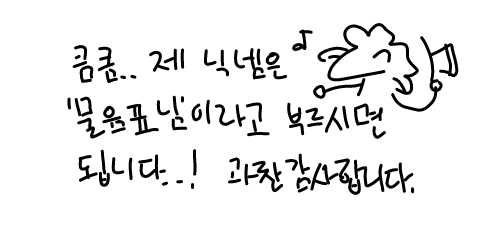 큼큼.. 제 닉넴은
'물음표님'이라고 부르시면
됩니다..! 관찬감사합니다.